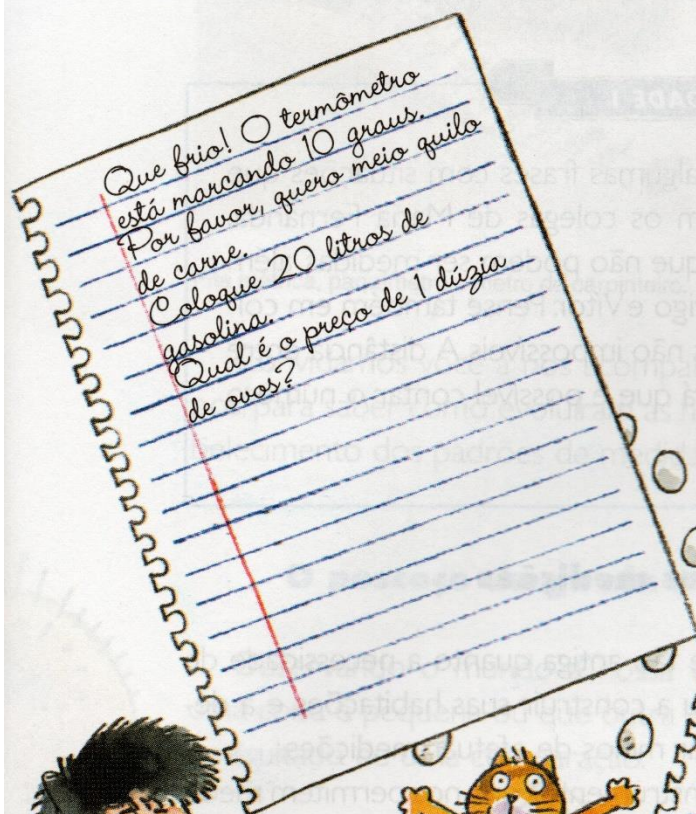 Que frio! O termômetro
está marcando 10 graus.
Por favor, quero meio quilo
de carne.
Coloque 20 litros de
gasolina.
Qual é o preço de 1 dúzia
de ovos?